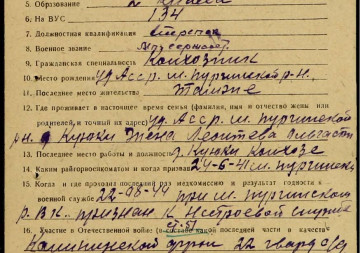 5. Образование 2 класса
6. На ВУС 134
7. Должностная квалификация стрелок
8. Военное звание
9. Гражданская специальность Колхозник
10. Место рождения уд. Асср. м. пургинской р-н.
11. Последнее место жительства
12. Где проживает в настоящее время семья (фамилия, имя и отчество жены или
родителей, и точный их адрес) уд. Асср. м. пургинской
рн. д Куюки Жена Леонтева
13. Последнее место работы и должность д. Куюки Колхозе
14. Каким райгорвоенкоматом и когда призван 24-6-41 м. пургинск
15. Когда и где проходил последний раз медкомиссию и результат годности к
военной службе 22-08-44 при м. пургинском
РВК. признан к нестроевой службе
16. Участие в Отечественной войне: (в составе какой последней части и в качестве
Калининской фрон 22 гвард